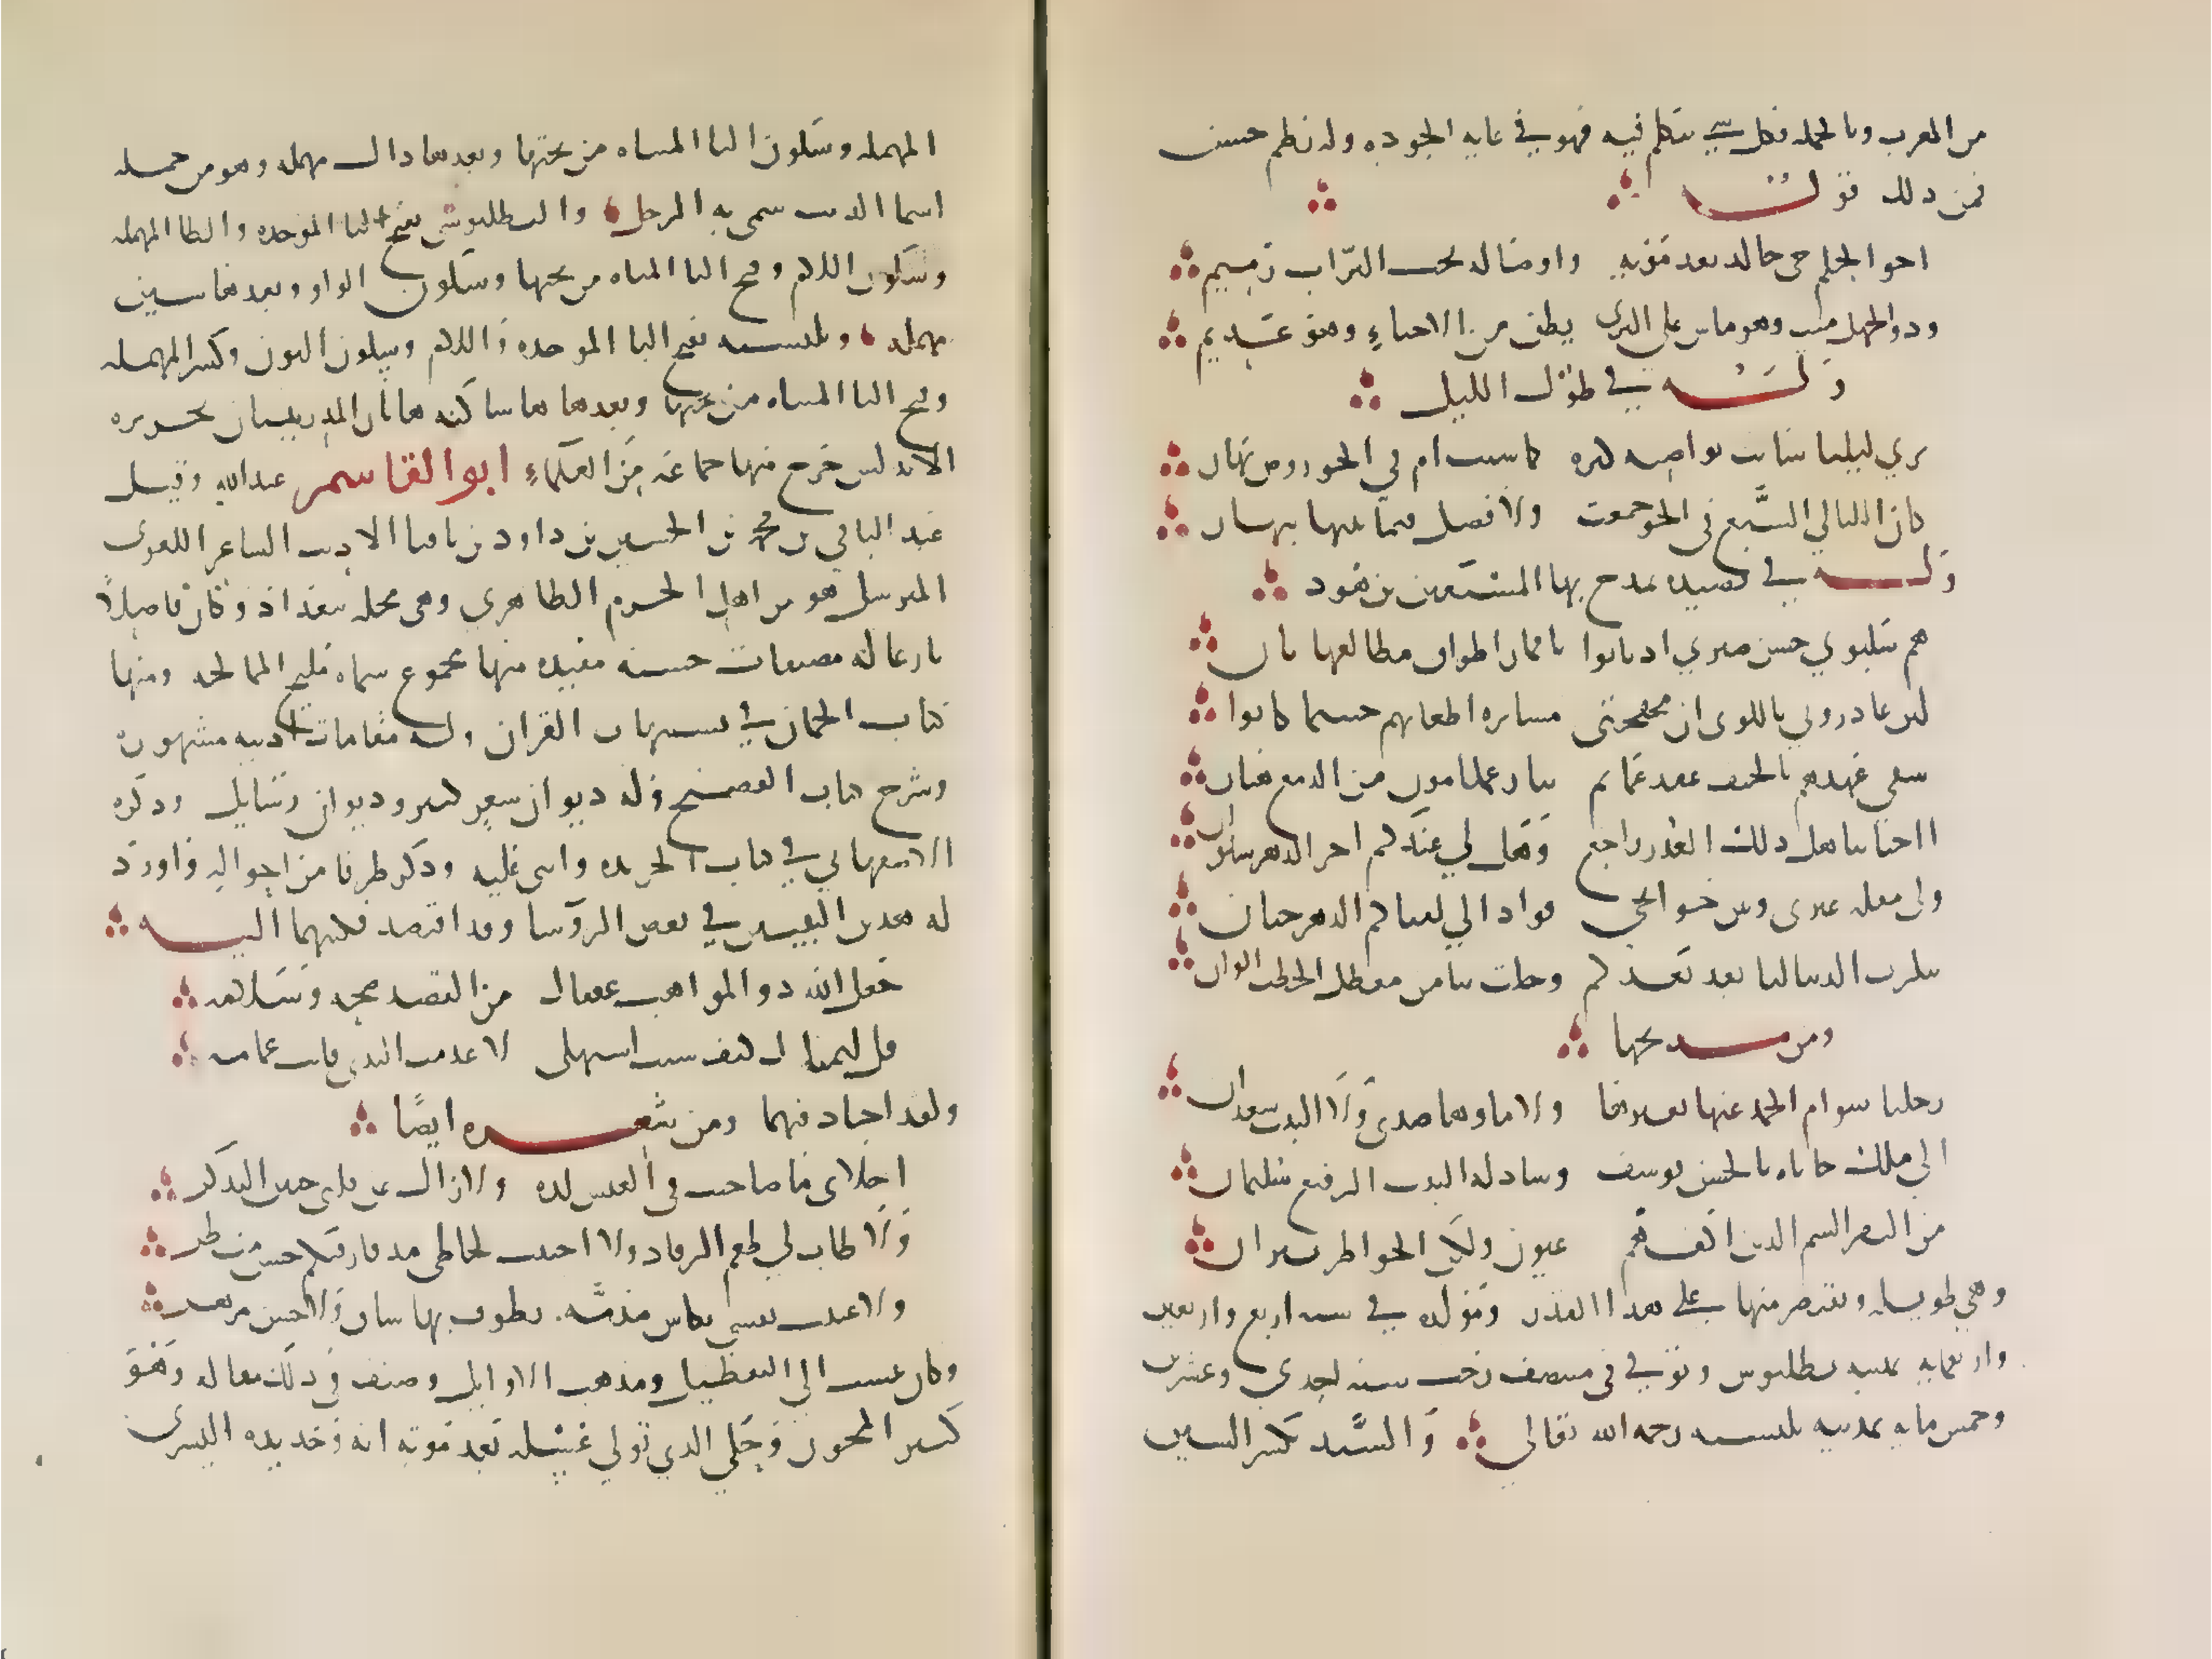 من المغرب وبالجملة فكل شي يتكلم فيه فهو في غايه الجوده وله نظم حسن
فمن ذلك قوله
اخو العلم حي خالد بعد موته واوصاله تحت التراب رميم
وذو الجهل ميت وهو ماش على الثرى يظن من الاحياء وهو عديم
وله في طول الليل
ترى ليلنا شابت نواصيه كبره كما شبت ام في الجو روض نهار
كان الليالي السبع في الجو جمعت ولا فصل فيما بينها بنهار
وله في قصيده يمدح بها المستعين بن هود
هم سلبوني حسن صبري اذ بانوا باقمار اطواق مطالعها بان
لئن غادروني باللوى ان مهجتي مسايره اظعانهم حيثما كانوا
سقى عهدهم بالخيف عهد غمايم ينازعها مزن من الدمع هتان
ااحبابنا هل ذلك العهد راجع وهل لي عنكم اخر الدهر سلوان
ولي مقله عبرى وبين جوانحي فواد الى لقياكم الدهر حنان
تنكرت الدنيا لنا بعد بعدكم وحلت بنا من معضل الخطب الوان
ومن مديحها
رحلنا سوام الحمد عنها لغيرها ولا ماوها صدى ولا النبت سعدان
الى ملك حاباه بالحسن يوسف وشاد له البيت الرفيع سليمان
من النفر الشم الذين اكفهم غيوث ولكن الخواطر نيران
وهي طويله ونقتصر منها على هذا القدر ومولده في سنه اربع واربعين
واربعمايه بمدينه بطليوس وتوفي في منتصف رجب سنه احدى وعشرين
وخمس مايه بمدينه بلنسيه رحمه الله تعالى والسيد بكسر السين
المهمله وسكون اليا المثناه من تحتها وبعدها دال مهمله وهو من جمله
اسما الذيب سمي به الرجل والبطليوسي بفتح البا الموحده والطا المهمله
وسكون اللام وفتح اليا المثناه من تحتها وسكون الواو وبعدها سين
مهمله وبلنسيه بفتح البا الموحده واللام وسكون النون وكسر المهمله
وفتح اليا المثناه من تحتها وبعدها ها ساكنه هاتان المدينتان بجزيره
الاندلس خرج منها جماعه من العلماء ابو القاسم عبد الله وقيل
عبد الباقي بن محمد بن الحسين بن داود بن ناقيا الاديب الشاعر اللغوي
المترسل هو من اهل الحريم الطاهري وهي محله ببغداد وكان فاضلا
بارعا له مصنفات حسنه مفيده منها مجموع سماه ملح الممالحه ومنها
كتاب الجمان في تشبيهات القران وله مقامات ادبيه مشهوره
وشرح كتاب الفصيح وله ديوان شعر كبير وديوان رسايل وذكره
الاصبهاني في كتاب الخريده واثنى عليه وذكر طرفا من احواله واورد
له هذين البيتين في بعض الروسا وقد اقتصد فكتبهما اليه
جعل الله ذو المواهب عقبا من الفصد صحه وسلامه
قل ليمناك كيف شيت استهلي لا عدمت الندى فانت غمامه
ولقد اجاد فيهما ومن شعره ايضا
اخلاي ما صاحبت في العيش لذه ولا زال عن قلبي حنين التذكر
ولا طاب لي طعم الرقاد ولا اجتنت لحاظي مذ فارقتكم حسن منظر
ولا عبثت كفي بكاس مدامه يطوف بها ساق ولا جس مزهر
وكان ينسب الى التعطيل ومذهب الاوايل وصنف في ذلك مقاله وهو
كثير المجون وحكى الذي تولى غسله بعد موته انه وجد يده اليسرى